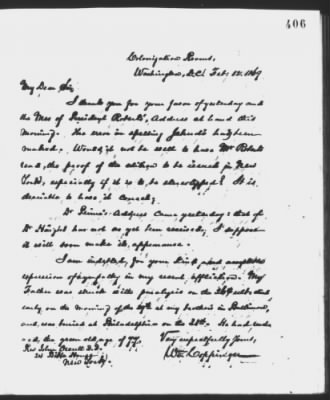 406
Colonization Rooms,
Washington, D.C. Feb. 12. 1869
My Dear Sir,
I thank you for your favor of yesterday and
the Mss of President Roberts' Address at hand this
morning. The error in spelling has been
marked. Would it not be well to have Mr Roberts
read, the proof of the edition to be issued in New
York, especially if it is to be stereotyped? It is
desirable to have it correct.
Dr Address came yesterday: that of
Dr has not as yet been received. I suppose
it will soon make its appearance.
I am indebted, for your kind and
expression of sympathy in my recent affliction. My
Father was struck with paralysis on the 26th
early on the morning of the at my brothers in
and was buried at Philadelphia on the 28th. He had
the green old age of 77.
Very respectfully yours,
Wm Coppinger
Rev John Orcutt D.D.
Bible House
New York.